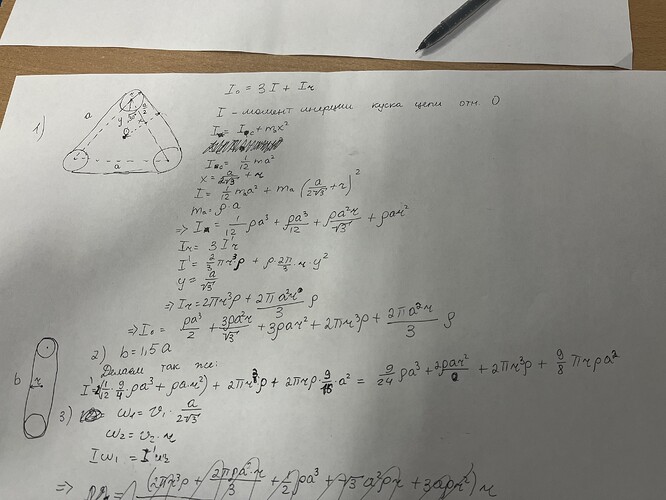 1)
a
y
x
O
a
I₀ = 3I + Iᵣ
I - момент инерции куска цепи отн. O
I = I_c + m x²
I_c = 1/12 ma²
x = a/2√3 + r
I = 1/12 mₐa² + mₐ (a/2√3 + r)²
mₐ = ρ·a
⇒ I = 1/12 ρa³ + ρa³/12 + ρa²r/√3 + ρar²
Iᵣ = 3I'
I' = 2/3 πr³ρ + ρ·2π/3·r·y²
y = a/√3
⇒ Iᵣ = 2πr³ρ + 2πa²r/3 ρ
⇒ I₀ = ρa³/2 + 3ρa²r/√3 + 3ρar² + 2πr³ρ + 2πa²r/3 ρ
2) b = 1,5a
Делаем так же:
b
r
+ 2πr³ρ + 2πrρ· · a² = 9/24 ρa³ + + 2πr³ρ + 9/8 πrρa²
3) ω₁ = v₁· a/2√3
ω₂ = v₂·r
Iω₁ =
⇒ (2πr³ρ + 2πρa²r/3 + 1/2 ρa³ + √3 a²ρr + 3aρr²) r